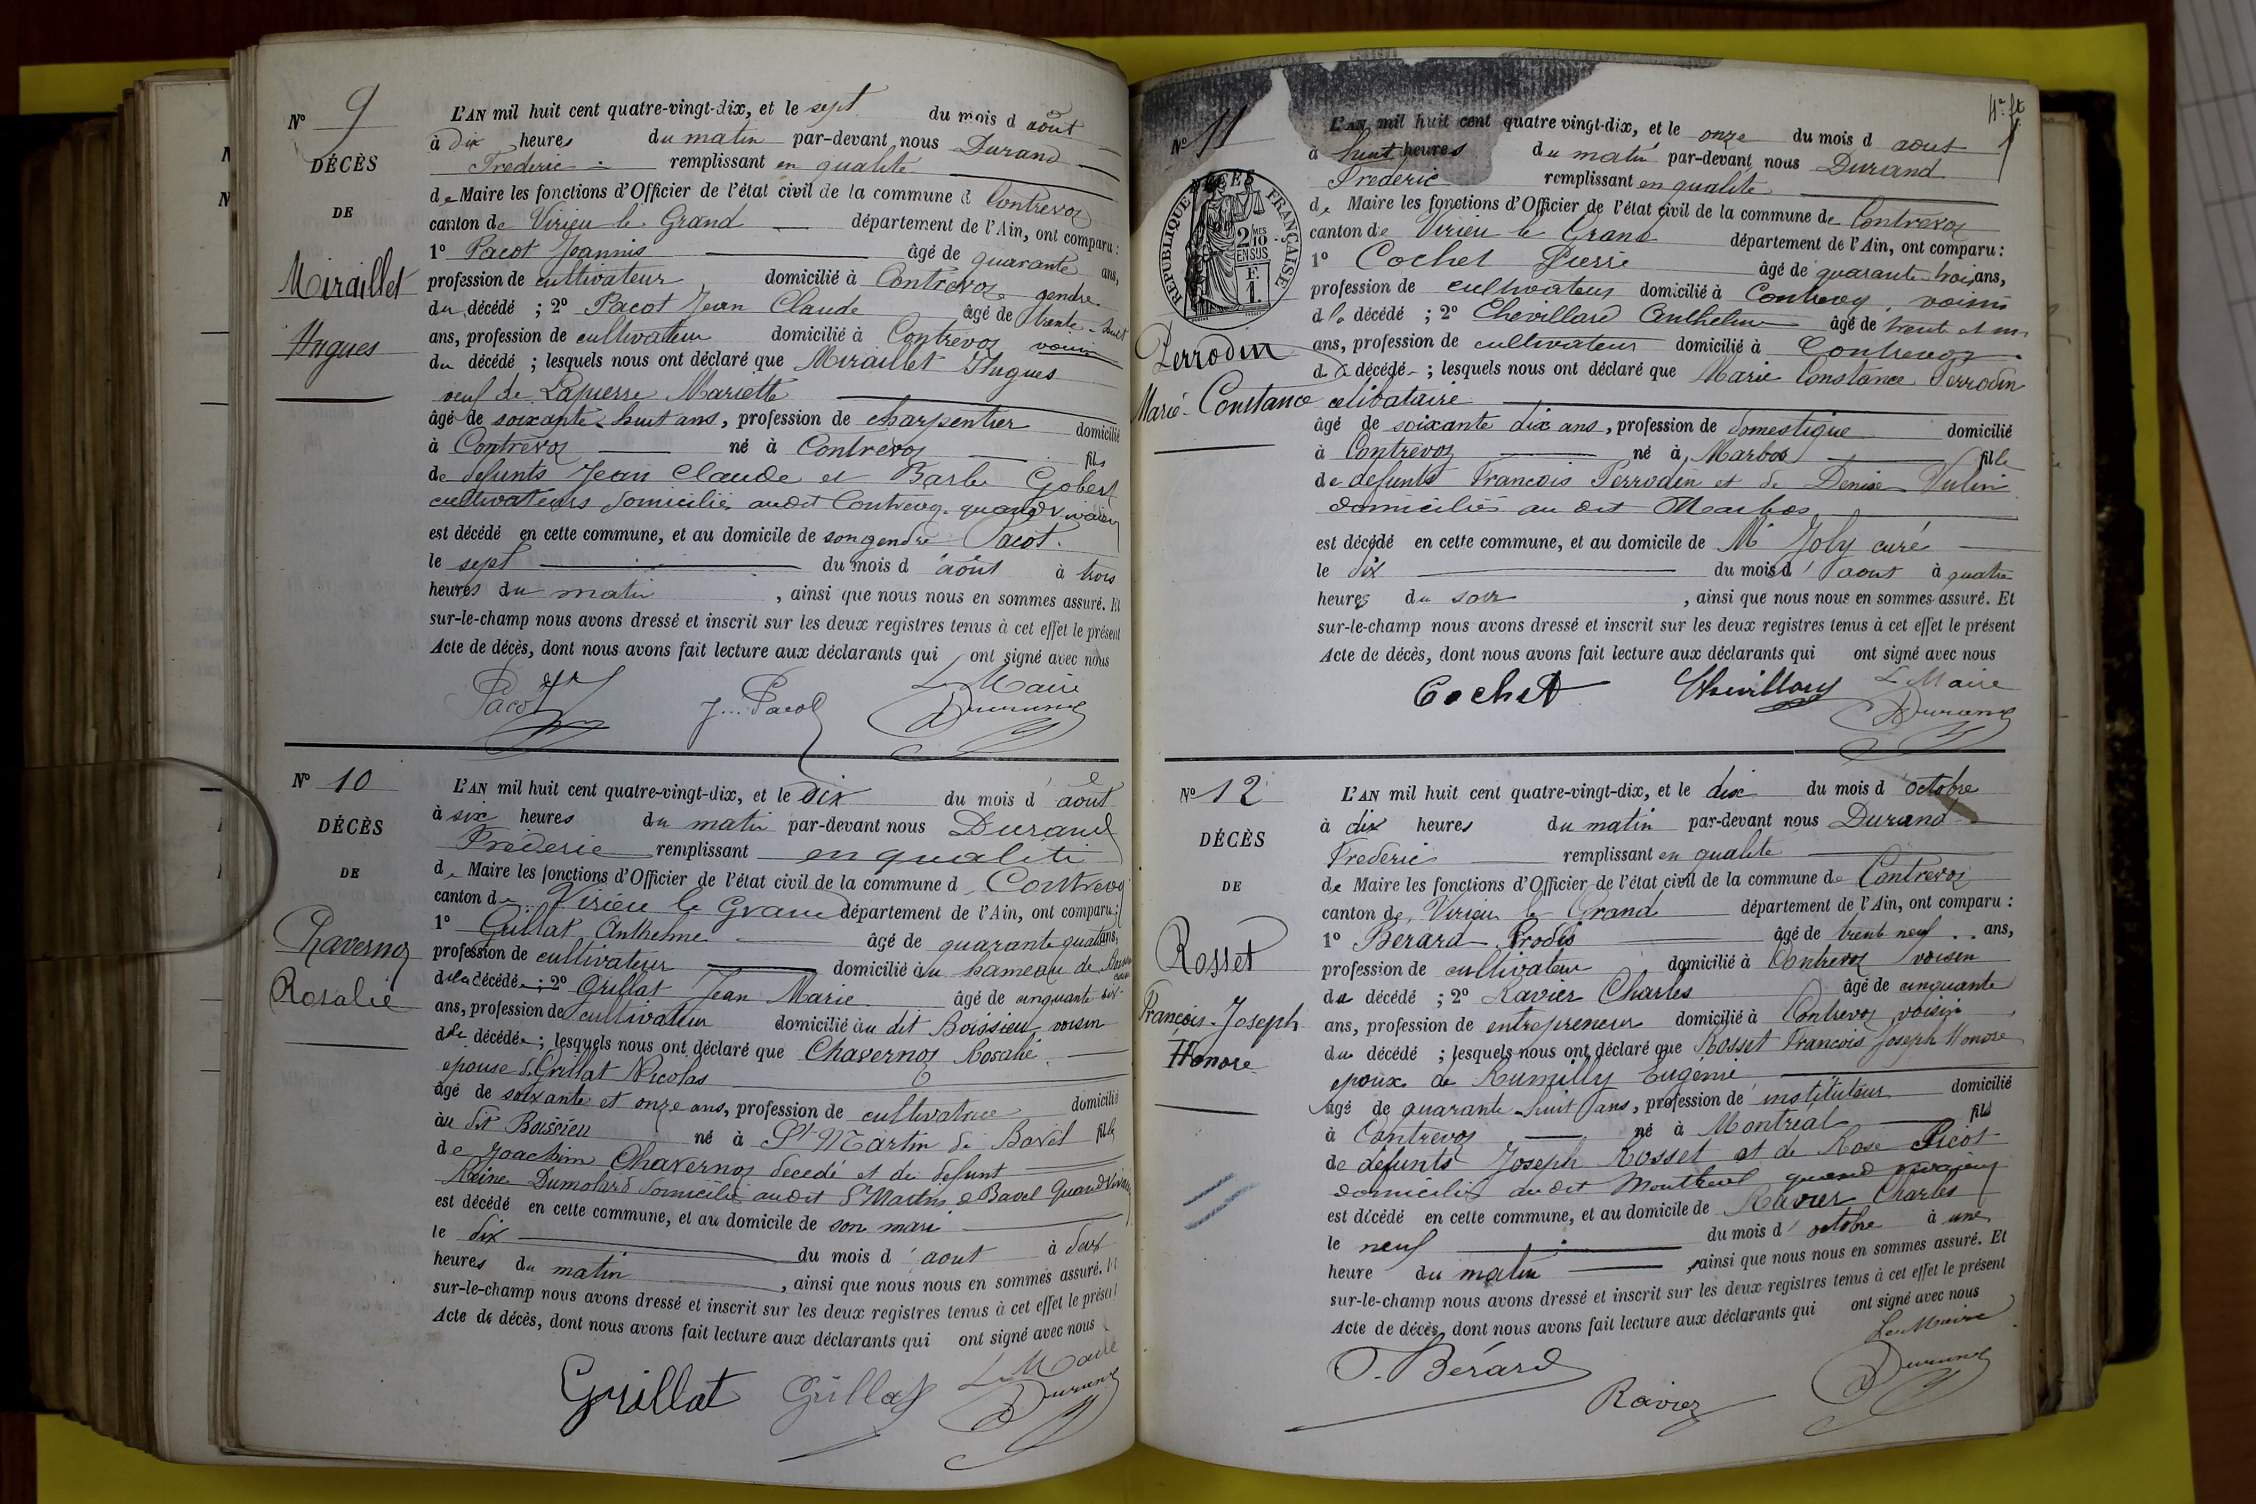 N° 9
DÉCÈS
DE
Miraillet
Hugues
L'AN mil huit cent quatre-vingt-dix, et le sept du mois d août
à dix heures du matin par-devant nous Durand
Frederic remplissant en qualité
de Maire les fonctions d'Officier de l'état civil de la commune d Contrevoz
canton de Virieu le Grand département de l'Ain, ont comparu :
1° Pacot Joannis âgé de quarante ans,
profession de cultivateur domicilié à Contrevoz gendre
du décédé ; 2° Pacot Jean Claude âgé de trente-huit
ans, profession de cultivateur domicilié à Contrevoz voisin
du décédé ; lesquels nous ont déclaré que Miraillet Hugues
veuf de Lapierre Mariette
âgé de soixante-huit ans, profession de charpentier domicilié
à Contrevoz né à Contrevoz fils
de defunts Jean Claude et Barbe Gobert
cultivateurs domiciliés audit Contrevoz quand vivaient
est décédé en cette commune, et au domicile de son gendre Pacot.
le sept du mois d'août à trois
heures du matin, ainsi que nous nous en sommes assuré. Et
sur-le-champ nous avons dressé et inscrit sur les deux registres tenus à cet effet le présent
Acte de décès, dont nous avons fait lecture aux déclarants qui ont signé avec nous
Pacot J. Pacot Le Maire
Durand
N° 10
DÉCÈS
DE
Chavernoz
Rosalie
L'AN mil huit cent quatre-vingt-dix, et le dix du mois d'août
à six heures du matin par-devant nous Durand
Frederic remplissant en qualité
de Maire les fonctions d'Officier de l'état civil de la commune d Contrevoz
canton de Virieu le Grand département de l'Ain, ont comparu :
1° Grillat Anthelme âgé de quarante quatre ans,
profession de cultivateur domicilié au hameau de
de la décédée ; 2° Grillat Jean Marie âgé de cinquante six
ans, profession de cultivateur domicilié au dit Boissieu voisin
de la décédée ; lesquels nous ont déclaré que Chavernoz Rosalie
epouse de Grillat Nicolas
âgé de soixante et onze ans, profession de cultivatrice domicilié
au dit Boissieu né à St Martin de Bavel fille
de Joachim Chavernoz decedé et de defunt
Reine Dumolard domicilié audit St Martin de Bavel quand vivait
est décédé en cette commune, et au domicile de son mari
le dix du mois d'aout à deux
heures du matin, ainsi que nous nous en sommes assuré. Et
sur-le-champ nous avons dressé et inscrit sur les deux registres tenus à cet effet le présent
Acte de décès, dont nous avons fait lecture aux déclarants qui ont signé avec nous
Grillat Grillat Le Maire
Durand
4e ft
N° 11
DÉCÈS
RÉPUBLIQUE FRANÇAISE
2 MES 10
EN SUS
F.
1.
Perrodin
Marie-Constance
L'AN mil huit cent quatre vingt-dix, et le onze du mois d aout
à huit heures du matin par-devant nous Durand
Frederic remplissant en qualité
de Maire les fonctions d'Officier de l'état civil de la commune de Contrevoz
canton de Virieu le Grand département de l'Ain, ont comparu :
1° Cochet Pierre âgé de quarante trois ans,
profession de cultivateur domicilié à Contrevoz voisin
d la décédé ; 2° Chevillard Anthelme âgé de trente et un
ans, profession de cultivateur domicilié à Contrevoz
d la décédé ; lesquels nous ont déclaré que Marie Constance Perrodin
celibataire
âgé de soixante dix ans, profession de domestique domicilié
à Contrevoz né à Marboz fille
de defunts Francois Perrodin et de Denise Vulin
domiciliés au dit Marbos
est décédé en cette commune, et au domicile de Mr Joly curé
le dix du mois d'aout à quatre
heures du soir, ainsi que nous nous en sommes assuré. Et
sur-le-champ nous avons dressé et inscrit sur les deux registres tenus à cet effet le présent
Acte de décès, dont nous avons fait lecture aux déclarants qui ont signé avec nous
Cochet Chevillard Le Maire
Durand
N° 12
DÉCÈS
DE
Rosset
François-Joseph
Honore
L'AN mil huit cent quatre-vingt-dix, et le dix du mois d'octobre
à dix heures du matin par-devant nous Durand
Frederic remplissant en qualité
de Maire les fonctions d'Officier de l'état civil de la commune de Contrevoz
canton de Virieu le Grand département de l'Ain, ont comparu :
1° Berard Prodis âgé de trente neuf ans,
profession de cultivateur domicilié à Contrevoz voisin
du décédé ; 2° Ravier Charles âgé de cinquante
ans, profession de entrepreneur domicilié à Contrevoz voisin
du décédé ; lesquels nous ont déclaré que Rosset Francois Joseph Honore
epoux de Rumilly Eugénie
âgé de quarante-huit ans, profession de instituteur domicilié
à Contrevoz né à Montréal fils
de défunts Joseph Rosset et de Rose Picot
domiciliés audit Montreal quand vivaient
est décédé en cette commune, et au domicile de Ravier Charles
le neuf du mois d'octobre à une
heure du matin, ainsi que nous nous en sommes assuré. Et
sur-le-champ nous avons dressé et inscrit sur les deux registres tenus à cet effet le présent
Acte de décès, dont nous avons fait lecture aux déclarants qui ont signé avec nous
P. Bérard Ravier Le Maire
Durand